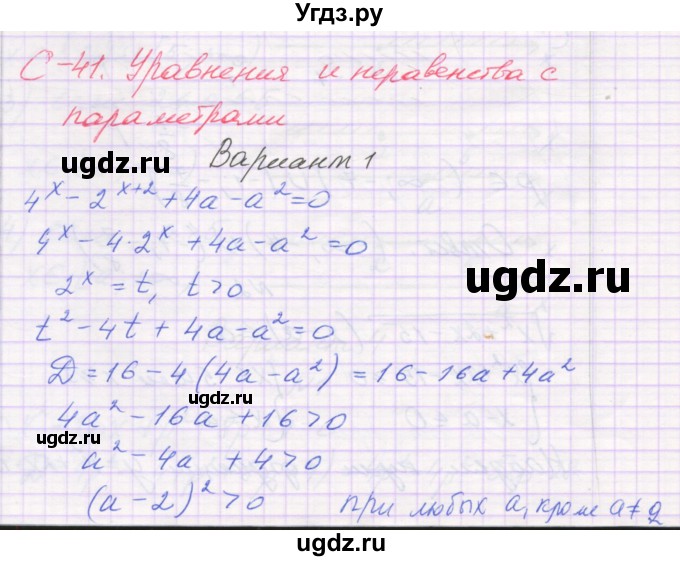 Угдз.ру
С-41. Уравнения и неравенства с
параметрами
Вариант 1
ugdz.ru
4^x - 2^{x+2} + 4a - a^2 = 0
4^x - 4·2^x + 4a - a^2 = 0
ugdz.ru
2^x = t, t > 0
t^2 - 4t + 4a - a^2 = 0
D = 16 - 4(4a - a^2) = 16 - 16a + 4a^2
4a^2 - 16a + 16 > 0
ugdz.ru
a^2 - 4a + 4 > 0
ugdz.ru
(a - 2)^2 > 0 при любых a, кроме a ≠ 2
ugdz.ru